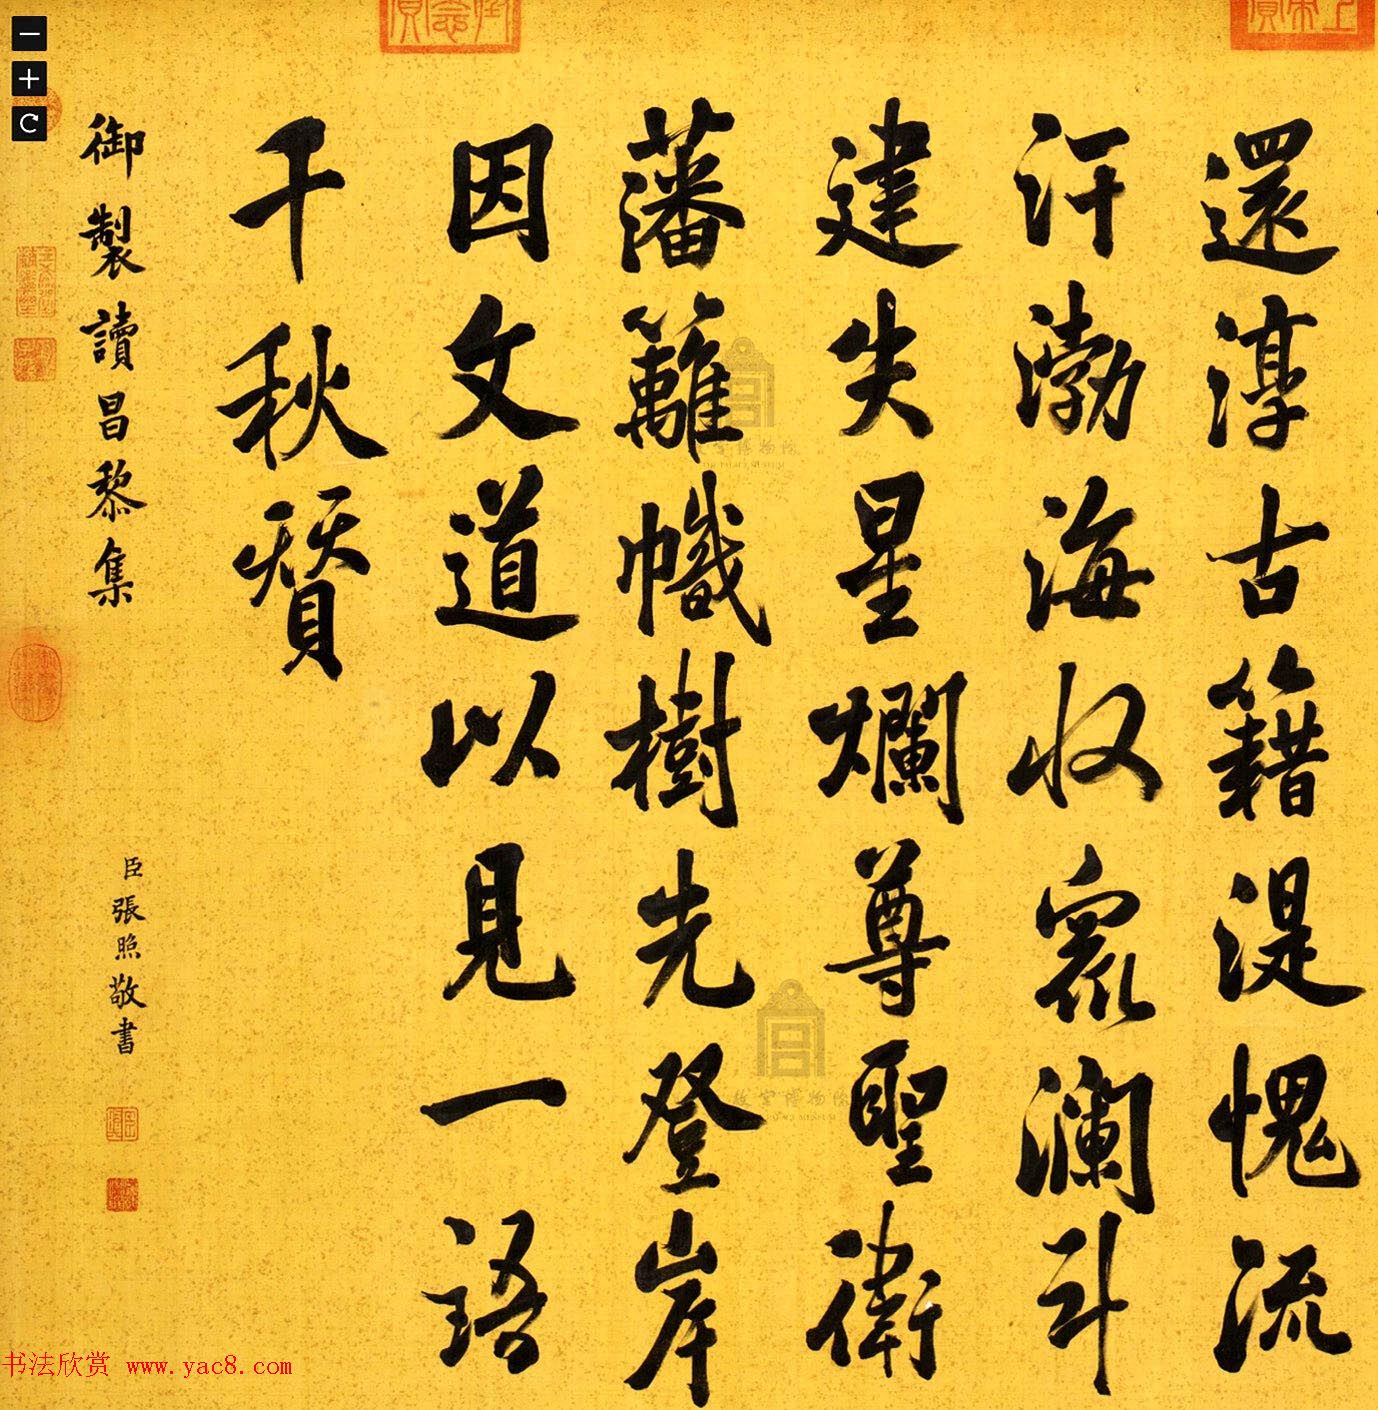 還淳古籍湜愧流
汗渤海收眾瀾斗
建失星爛尊聖衛
藩籬幟樹先登岸
因文道以見一語
千秋賢
御製讀昌黎集
臣張照敬書
书法欣赏 www.yac8.com